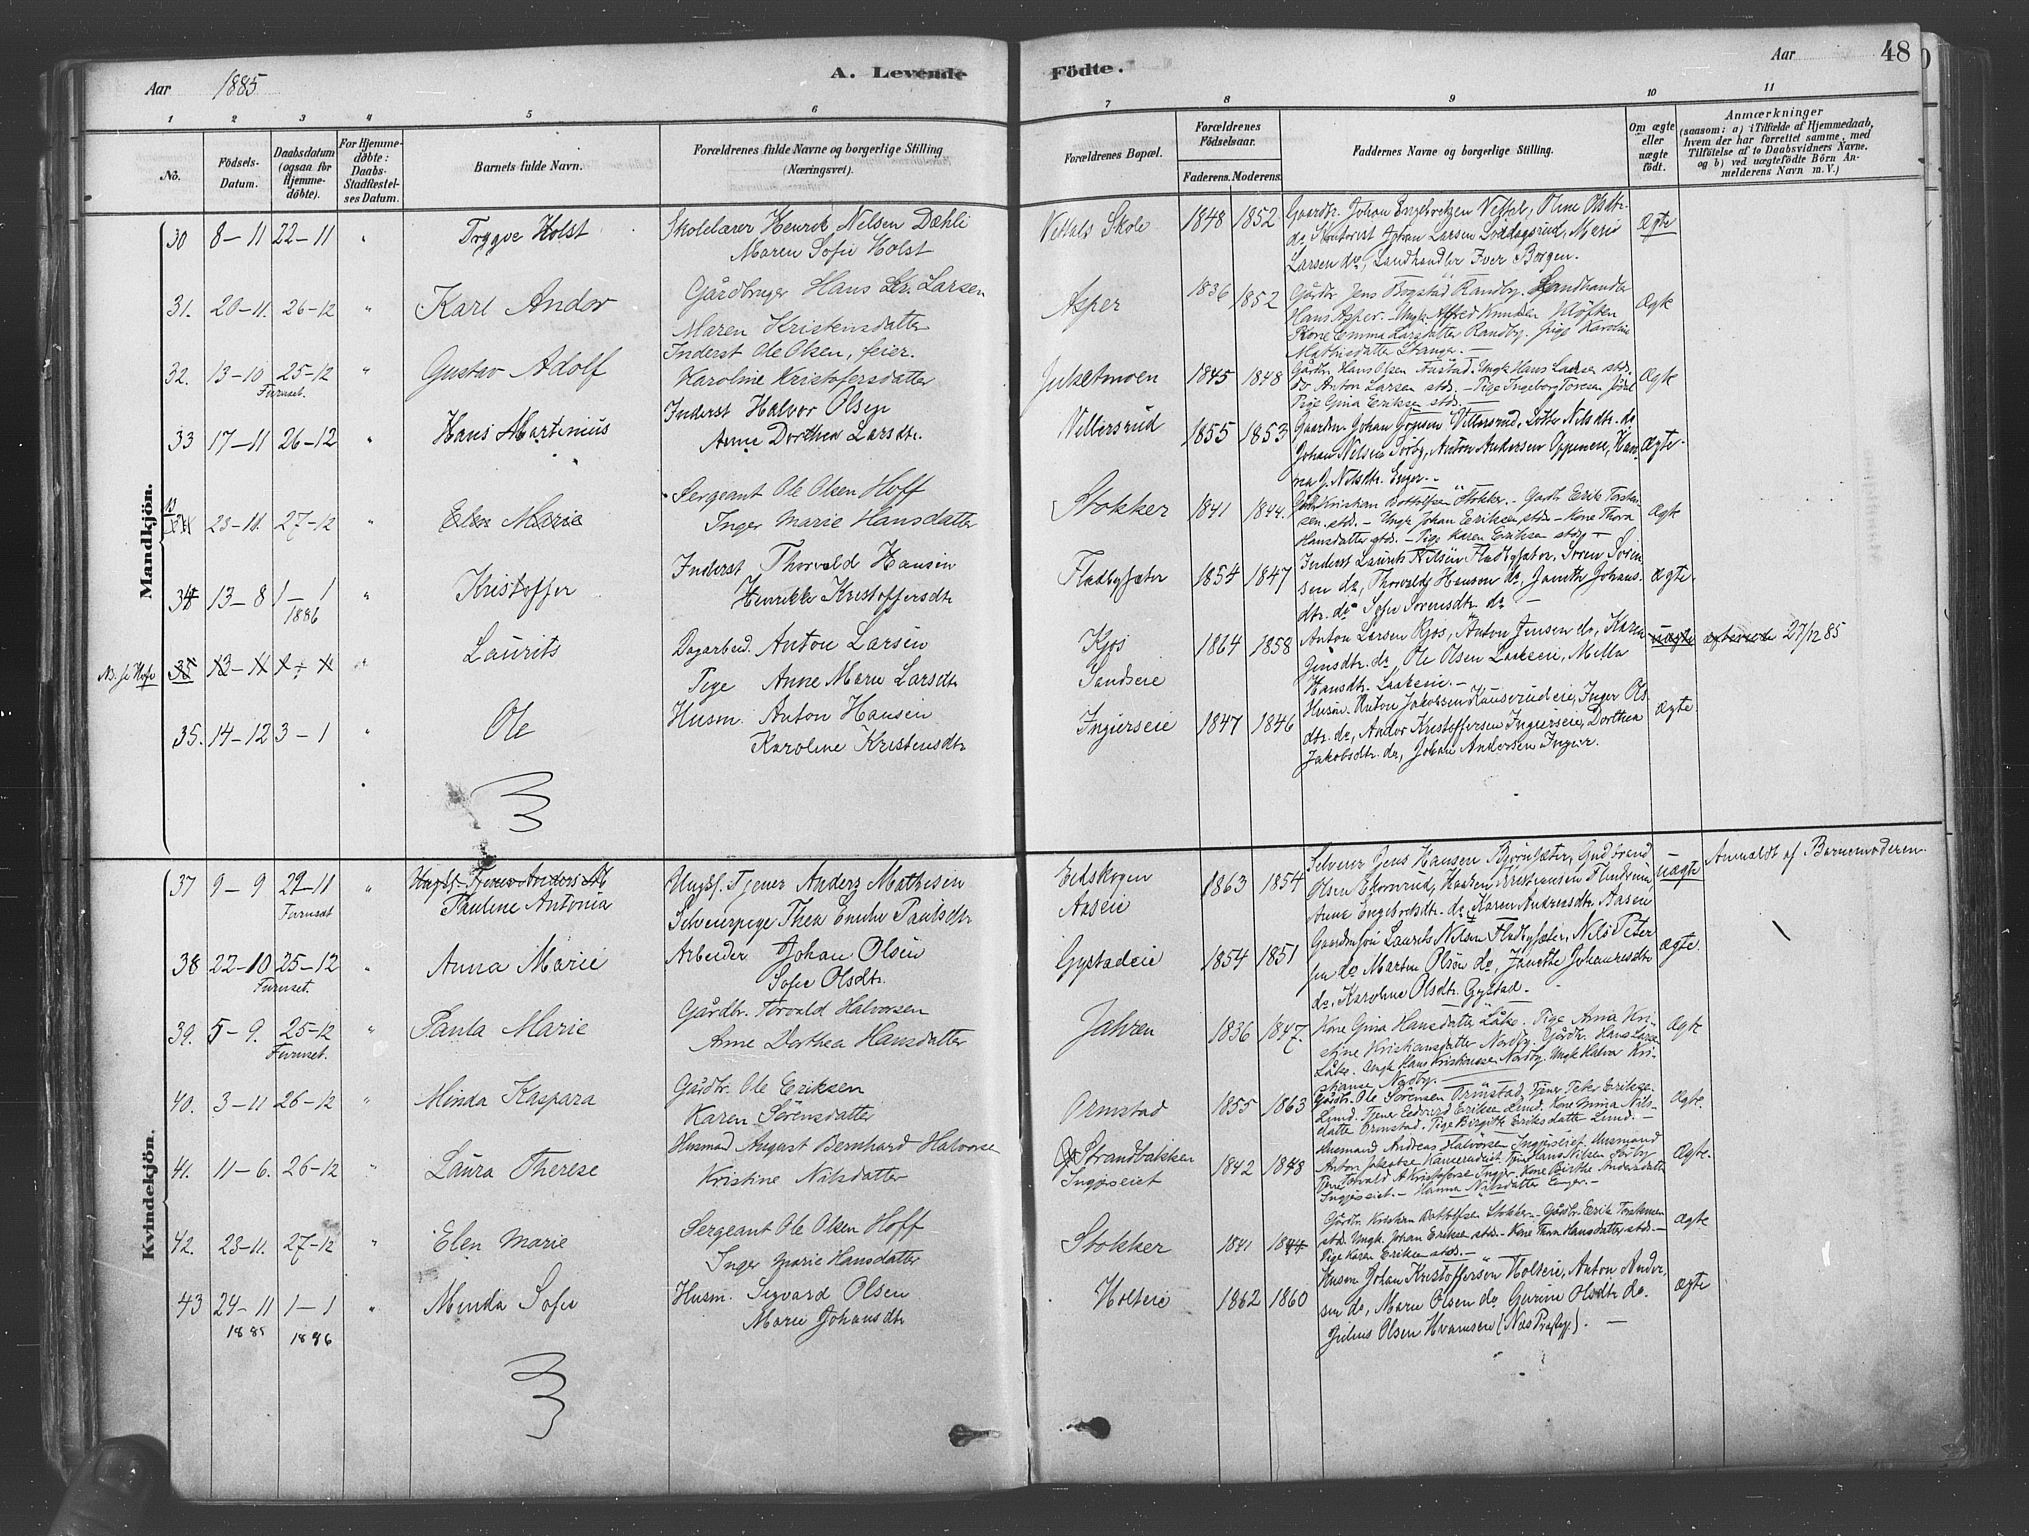 Aar 1885 A. Levende
Födte. Aar 48
1 2 3 4 5 6
7 8 9 10 11
No.
Födsels-Datum.
Daabsdatum (ogsaa for Hjemmedöbte).
For Hjemmedöbte: Daabs-Stadfæstelses Datum.
Barnets fulde Navn.
Forældrenes fulde Navne og borgerlige Stilling (Næringsvei).
Forældrenes Bopæl.
Forældrenes Födselsaar.
Faderens. Moderens.
Faddernes Navne og borgerlige Stilling.
Om ægte eller uægte födt.
Anmærkninger
(saasom: a) i Tilfælde af Hjemmedaab, hvem der har forrettet samme, med Tilföielse af to Daabsvidners Navne, og b) ved uægtefödte Börn Anmelderens Navn m. V.)
Mandkjön.
30 8-11 22-11 " Trygve Holst
Skolelærer Henrik Nilsen Dæhli
Maren Sofie Holst
Vestals Skole 1848 1852
Gaardbr. Johan Engebretsen Oline Olsdtr.
do, Kontorist Johan Larsen Marie
Larsen do, Landhandler Iver Borgen.
Ægte
31. 20-11. 26-12 " Karl Andor
Gårdbruger Hans Kr. Larsen
Maren Kristensdatter
Asper 1836 1852
Gårdbr Jens Bogstad Randby. Landhandler
Hans Asper. - Ungk. Alfred Knudsen Kløften
Kone Emma Larsdatter Randby. Pige Karoline
Mathisdatter Stange. -
Ægte
32. 13-10 25-12 " Gustav Adolf
Furuset.
Inderst Ole Olsen, feier.
Karoline Kristofersdatter
Julsetmoen 1845 1848
Gårdbr. Hans Olsen Ungk Hans Larsen stds.
do Anton Larsen stds. - Pige Ingeborg Toresen
Pige Gina Eriksen stds. -
Ægte
33 17-11 26-12 " Hans Martinius
Inderst Halvor Olsen
Anne Dorthea Larsdtr.
Villersrud 1855 1853
Gaardbr. Johan Villersrud, Nilsdtr. do
Johan Nilsen Anton Andersen Oppeneie, Han-
na J. Nilsdtr. Enger. -
Ægte.
23-11. 27-12 " Elen Marie
Sergeant Ole Olsen Hoff
Inger Marie Hansdatter
Stokker 1841 1844.
Gårdbr Kristian Stokker. - Gårdbr Erik Torsten-
sen stds. - Ungk Johan Eriksen stds - Kone Thora
Hansdatter stds. - Pige Karen Eriksen stds. -
Ægte
34 13-8 1-1 " Kristoffer
1886
Inderst Thorvald Hansen
Henrikke Kristoffersdtr
Fladbysæter 1854 1847
Inderst Laurits Nilsen Fladbysæter, Søren Søren-
sen do, Thorvald Hansen do, Janette Johans-
dtr. do Sofie Sørensdtr. do
Ægte.
35 Laurits
Dagarbeid. Anton Larsen
Pige Anne Marie Larsdtr
Kjos
Sandseie
1864 1858
Anton Larsen Kjos, Anton Jensen do, Karen
Jensdtr. do, Ole Olsen Laakeeie, Mella
Hansdtr. Laakeeie. -
uægte 27/12 85
35. 14-12 3-1 " Ole
Husm. Anton Hansen
Karoline Kristensdtr
Ingierseie 1847 1846
Husm. Anton Jakobsen Kauserudeie, Inger Ols-
dtr. do, Andor Kristoffersen Ingierseie, Dorthea
Jakobsdtr. do, Johan Andersen Ingier.
Ægte
Kvindekjön.
37 9-9 22-11 " Ungkf. Tjener Anders
Furuset Pauline Antonia
Ungkf. Tjener Anders Mathisen
Selveierpige Thea Emilie Paulsdtr
Eidskogen
Aaseie
1863 1854
Selveier Jens Hansen Bjørnsæter, Gudbrand
Olsen Haaken Kristiansen
Anne Engebretsdtr. do, Karen Andreasdtr. Aasen
uægte
Anmeldt af Barnemoderen.
38 22-10 25-12 " Anna Marie
Furuset.
Arbeider Johan Olsen
Sofie Olsdtr.
Gystadeie 1854 1851
Gaardmsøn Laurits Nilsen Fladbysæter, Nils Peter-
sen do Martin Olsen do, Janette Johannesdtr
do, Karoline Olsdtr. Gystad. -
Ægte.
39. 5-9. 25-12 " Paula Marie
Furuset.
Gårdbr. Torvald Halvorsen
Anne Dorthea Hansdatter
Jahren 1836 1847.
Kone Gina Hansdatter Låke. Pige Anna Kri-
stine Kristiansdatter Nordby. Gårdbr. Hans Larsen
Låke. Ungk Hans Kristiansen Nordby. Ungk Halvor Kri-
stiansen Nordby.
Ægte.
40. 3-11 26-12 " Minda Kaspara
Gårdbr. Ole Eriksen
Karen Sörensdatter
Ormstad 1855 1863
Gårdbr. Ole Sörensen Ormstad. Tjener Peter Eriksen
Lund. Tjener Edvard Eriksen Lund. Kone Mina Nils-
datter Ormstad. Pige Birgitte Eriksdatter Lund. -
Ægte.
41. 11-6. 26-12 " Laura Therese
Husmand August Bernhard Halvorsen
Kristine Nilsdatter
Strandbakken
Ingjerseiet
1842 1848
Husmand Andreas Halvorsen Ingjerseiet. Husmand
Anton Jakobsen Kauserudeiet. Tjener Hans Nilsen
Tjener Torvald A Kristofersen Inger. Kone Birthe Andersdatter
Ingjerseiet. - Hanna Nilsdatter Enger. -
Ægte.
42. 23-11. 27-12 " Elen Marie
Sergeant Ole Olsen Hoff
Inger Marie Hansdatter
Stokker 1841 1844
Gårdbr. Kristian Stokker. - Gårdbr. Erik Torstensen
stds. Ungk. Johan Eriksen stds. - Kone Thora Hansdatter stds. -
Pige Karen Eriksen stds. -
Ægte
43 24-11 1-1 " Minda Sofie
1885 1886
Husm. Sigvard Olsen
Marie Johansdtr
Holteie 1862 1860
Husm. Johan Kristoffersen Holteie, Anton Ander-
sen do, Marie Olsen do Gurine Olsdtr do.
Julius Olsen Hvamseie (Næs Præstgj). -
Ægte